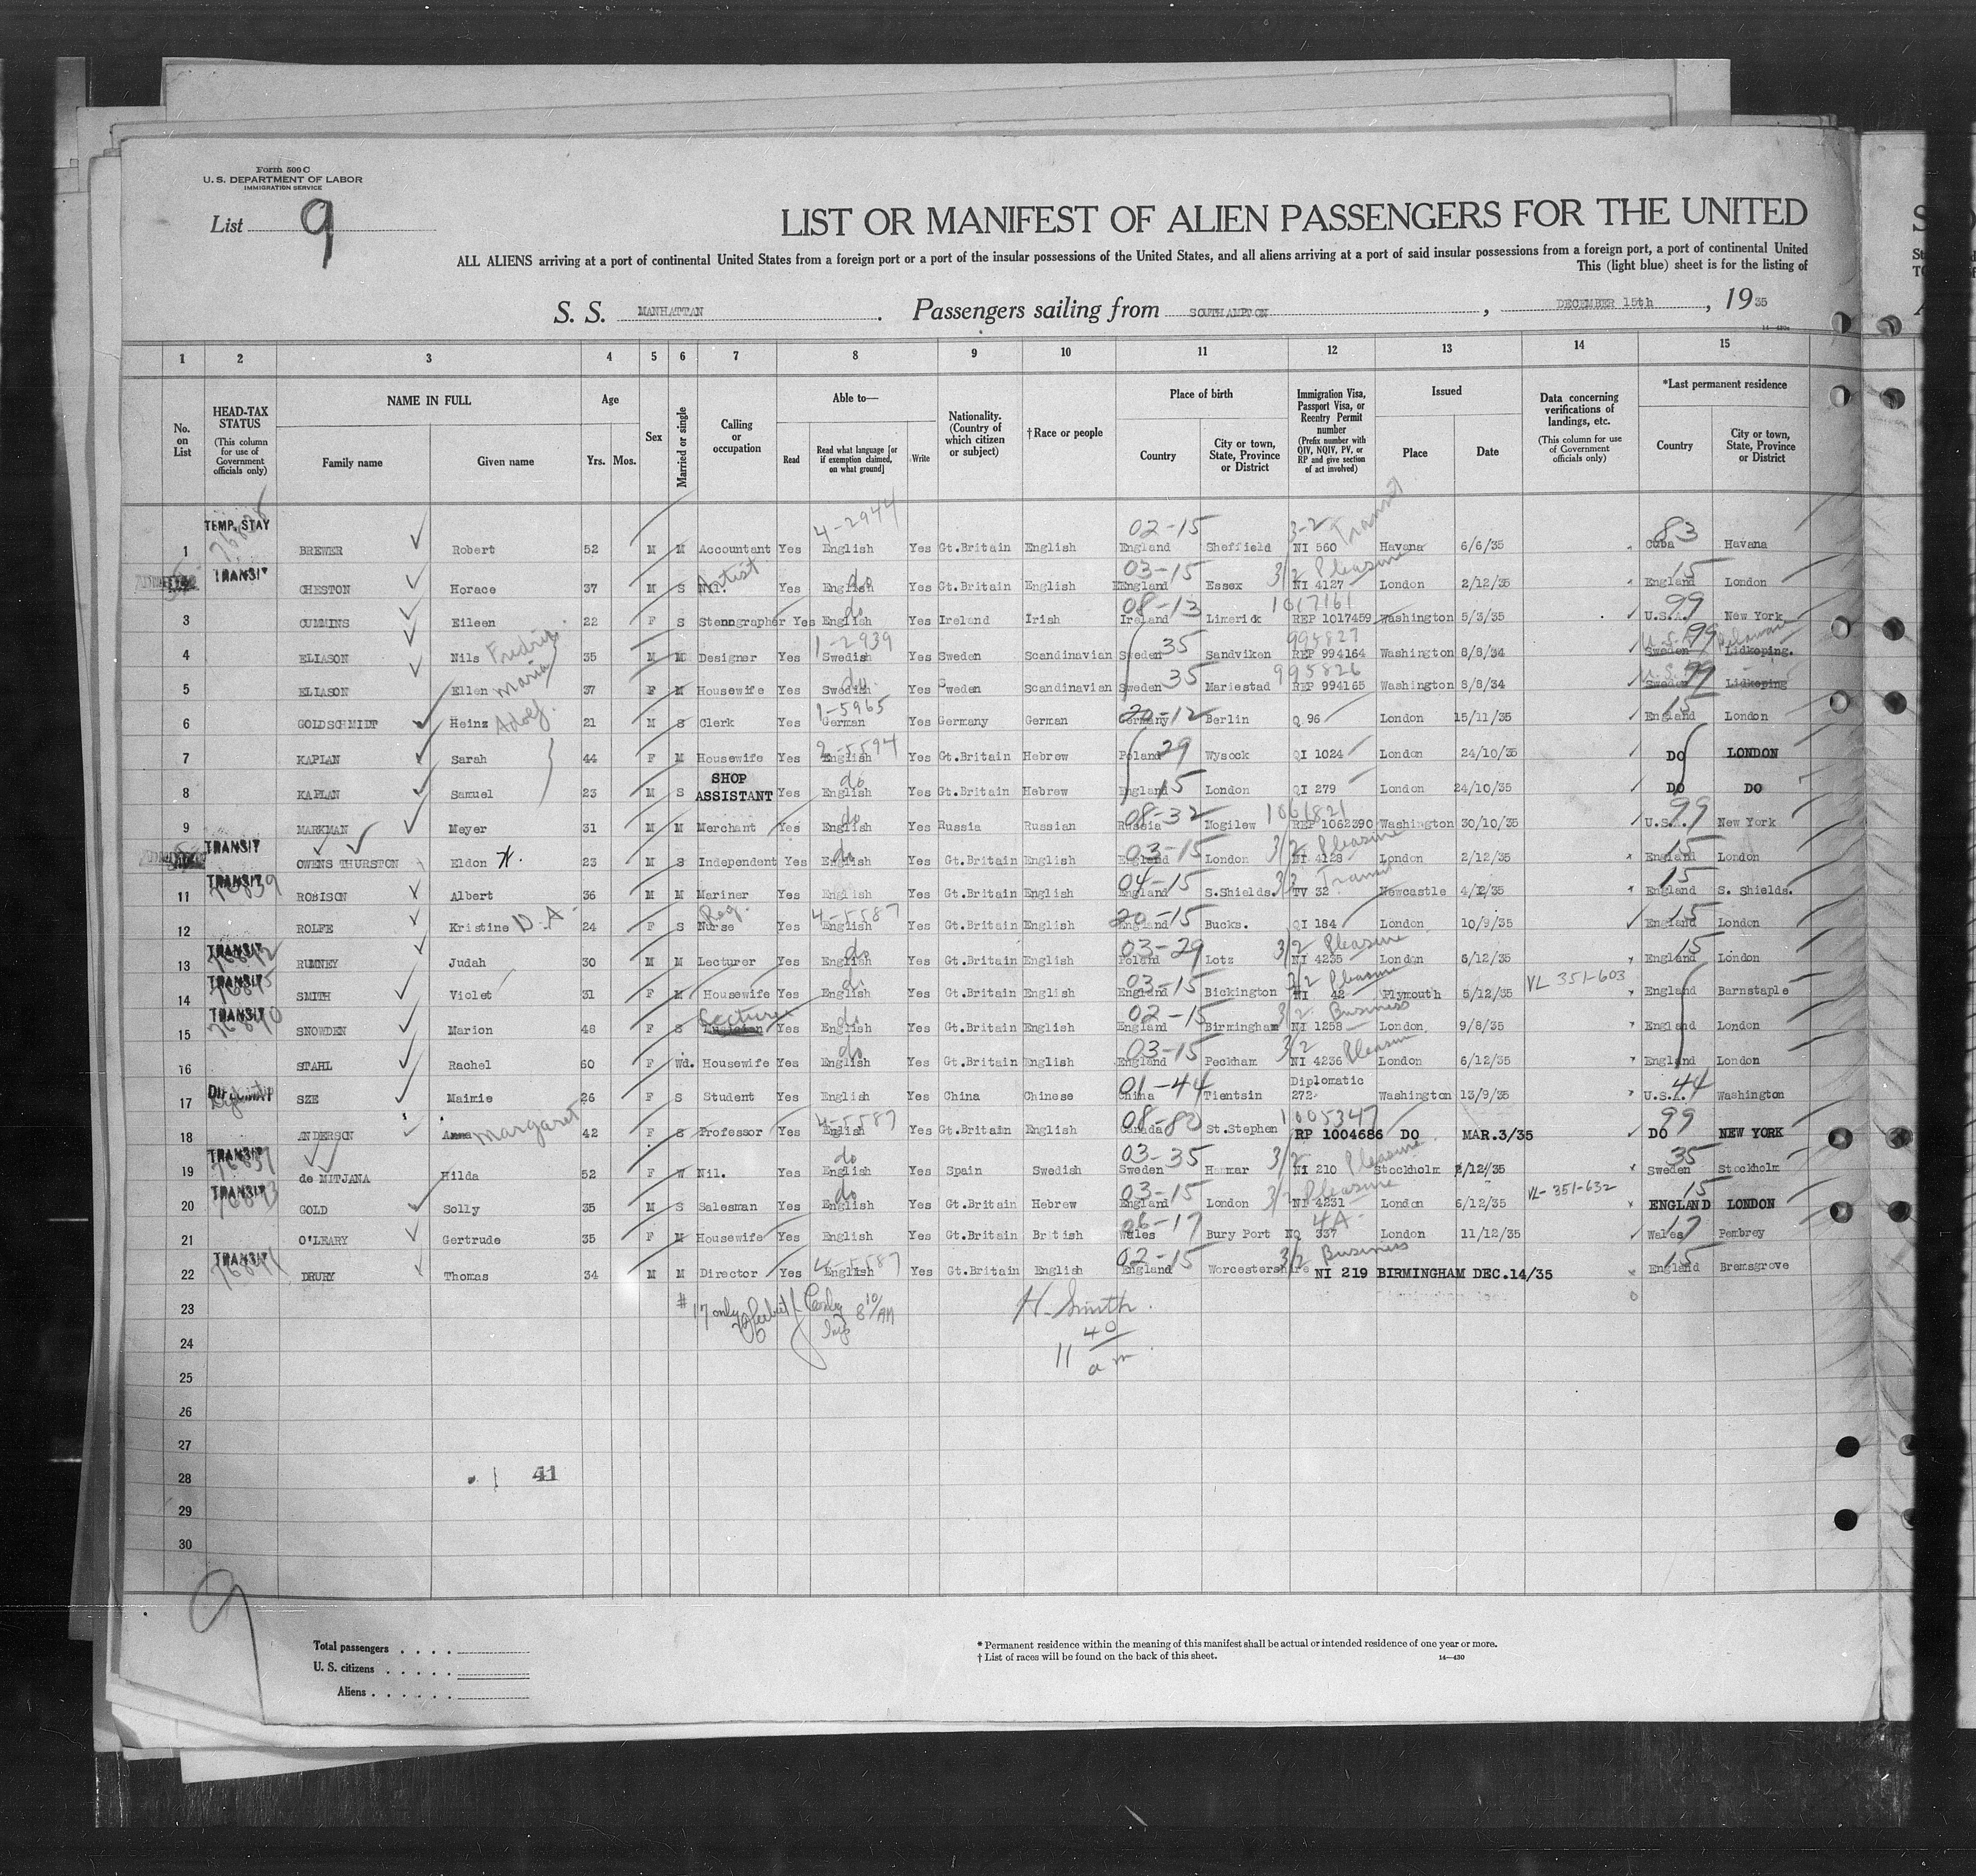 Form 500 C
U. S. DEPARTMENT OF LABOR
IMMIGRATION SERVICE
List 9
LIST OR MANIFEST OF ALIEN PASSENGERS FOR THE UNITED
ALL ALIENS arriving at a port of continental United States from a foreign port or a port of the insular possessions of the United States, and all aliens arriving at a port of said insular possessions from a foreign port, a port of continental United
This (light blue) sheet is for the listing of
S. S. MANHATTAN. Passengers sailing from SOUTHAMPTON, DECEMBER 15th, 1935
1 2 3 4 5 6 7 8 9 10 11 12 13 14 15
No. on List
HEAD-TAX STATUS (This column for use of Government officials only)
NAME IN FULL
Family name
Given name
Age
Yrs. Mos.
Sex
Married or single
Calling or occupation
Able to—
Read
Read what language [or if exemption claimed, on what ground]
Write
Nationality. (Country of which citizen or subject)
†Race or people
Place of birth
Country
City or town, State, Province or District
Immigration Visa, Passport Visa, or Reentry Permit number (Prefix number with QIV, NQIV, PV, or RP and give section of act involved)
Issued
Place
Date
Data concerning verifications of landings, etc. (This column for use of Government officials only)
*Last permanent residence
Country
City or town, State, Province or District
TEMP. STAY 4-2944 02-15 3-2 Transit 83
1 BREWER Robert 52 M M Accountant Yes English Yes Gt.Britain English England Sheffield NI 560 Havana 6/6/35 Cuba Havana
TRANSIT Artist do 03-15 3/2 Pleasure 15
CHESTON Horace 37 M S Nil. Yes English Yes Gt.Britain English England Essex NI 4127 London 2/12/35 England London
do 08-13 1017161 99
3 CUMMINS Eileen 22 F S Stenographer Yes English Yes Ireland Irish Ireland Limerick REP 1017459 Washington 5/3/35 U.S.A. New York
Fredrik 1-2939 35 994827 U.S. 99
4 ELIASON Nils 35 M M Designer Yes Swedish Yes Sweden Scandinavian Sweden Sandviken REP 994164 Washington 8/8/34 Sweden Lidkoping.
Maria do. 35 995826 U.S. 99
5 ELIASON Ellen 37 F M Housewife Yes Swedish Yes Sweden Scandinavian Sweden Mariestad REP 994165 Washington 8/8/34 Sweden Lidkoping
Adolf. 1-5965 20-12 15
6 GOLDSCHMIDT Heinz 21 M S Clerk Yes German Yes Germany German Germany Berlin Q 96 London 15/11/35 England London
2-5594 29
7 KAPLAN Sarah 44 F M Housewife Yes English Yes Gt.Britain Hebrew Poland Wysock QI 1024 London 24/10/35 DO LONDON
do 15
8 KAPLAN Samuel 23 M S SHOP ASSISTANT Yes English Yes Gt.Britain Hebrew England London QI 279 London 24/10/35 DO DO
do 08-32 1061821 99
9 MARKMAN Meyer 31 M M Merchant Yes English Yes Russia Russian Russia Mogilew REP 1062390 Washington 30/10/35 U.S.A. New York
TRANSIT do 03-15 3/2 Pleasure 15
OWENS THURSTON Eldon H. 23 M S Independent Yes English Yes Gt.Britain English England London NI 4128 London 2/12/35 England London
TRANSIT 76839 04-15 3/2 Transit 15
11 ROBISON Albert 36 M M Mariner Yes English Yes Gt.Britain English England S.Shields. TV 32 Newcastle 4/12/35 England S. Shields.
D.A. Reg. 4-5587 20-15 15
12 ROLFE Kristine 24 F S Nurse Yes English Yes Gt.Britain English England Bucks. QI 184 London 10/9/35 England London
TRANSIT 76842 do 03-29 3/2 Pleasure 15
13 RUMNEY Judah 30 M M Lecturer Yes English Yes Gt.Britain English Poland Lotz NI 4235 London 6/12/35 England London
TRANSIT 76845 do 03-15 3/2 Pleasure VL 351-603
14 SMITH Violet 31 F M Housewife Yes English Yes Gt.Britain English England Bickington NI 42 Plymouth 5/12/35 England Barnstaple
TRANSIT 76840 Lecturer do 02-15 3/2 Business
15 SNOWDEN Marion 48 F S Yes English Yes Gt.Britain English England Birmingham NI 1258 London 9/8/35 England London
do 03-15 3/2 Pleasure
16 STAHL Rachel 60 F Wd. Housewife Yes English Yes Gt.Britain English England Peckham NI 4236 London 6/12/35 England London
DIPLOMAT 01-44 44
17 SZE Maimie 26 F S Student Yes English Yes China Chinese China Tientsin Diplomatic 272 Washington 13/9/35 U.S.A. Washington
Margaret 4-5587 08-80 1005347 99
18 ANDERSON Anna 42 F S Professor Yes English Yes Gt.Britain English Canada St.Stephen RP 1004686 DO MAR.3/35 DO NEW YORK
TRANSIT 76837 do 03-35 3/2 Pleasure 35
19 de MITJANA Hilda 52 F W Nil. Yes English Yes Spain Swedish Sweden Hammar NI 210 Stockholm 2/12/35 Sweden Stockholm
TRANSIT do 03-15 3/2 Pleasure VL-351-632 15
20 GOLD Solly 35 M S Salesman Yes English Yes Gt.Britain Hebrew England London NI 4231 London 6/12/35 ENGLAND LONDON
06-17 4A- 17
21 O'LEARY Gertrude 35 F M Housewife Yes English Yes Gt.Britain British Wales Bury Port NQ 337 London 11/12/35 Wales Pembrey
TRANSIT 4-5587 02-15 3/2 Business 15
22 DRURY Thomas 34 M M Director Yes English Yes Gt.Britain English England Worcestershire NI 219 BIRMINGHAM DEC.14/35 England Bromsgrove
23 # 17 only 8 10/AM H. Smith
24 11 40 a m
25
26
27
28 41
29
30
9
Total passengers
U. S. citizens
Aliens
* Permanent residence within the meaning of this manifest shall be actual or intended residence of one year or more.
† List of races will be found on the back of this sheet. 14—430